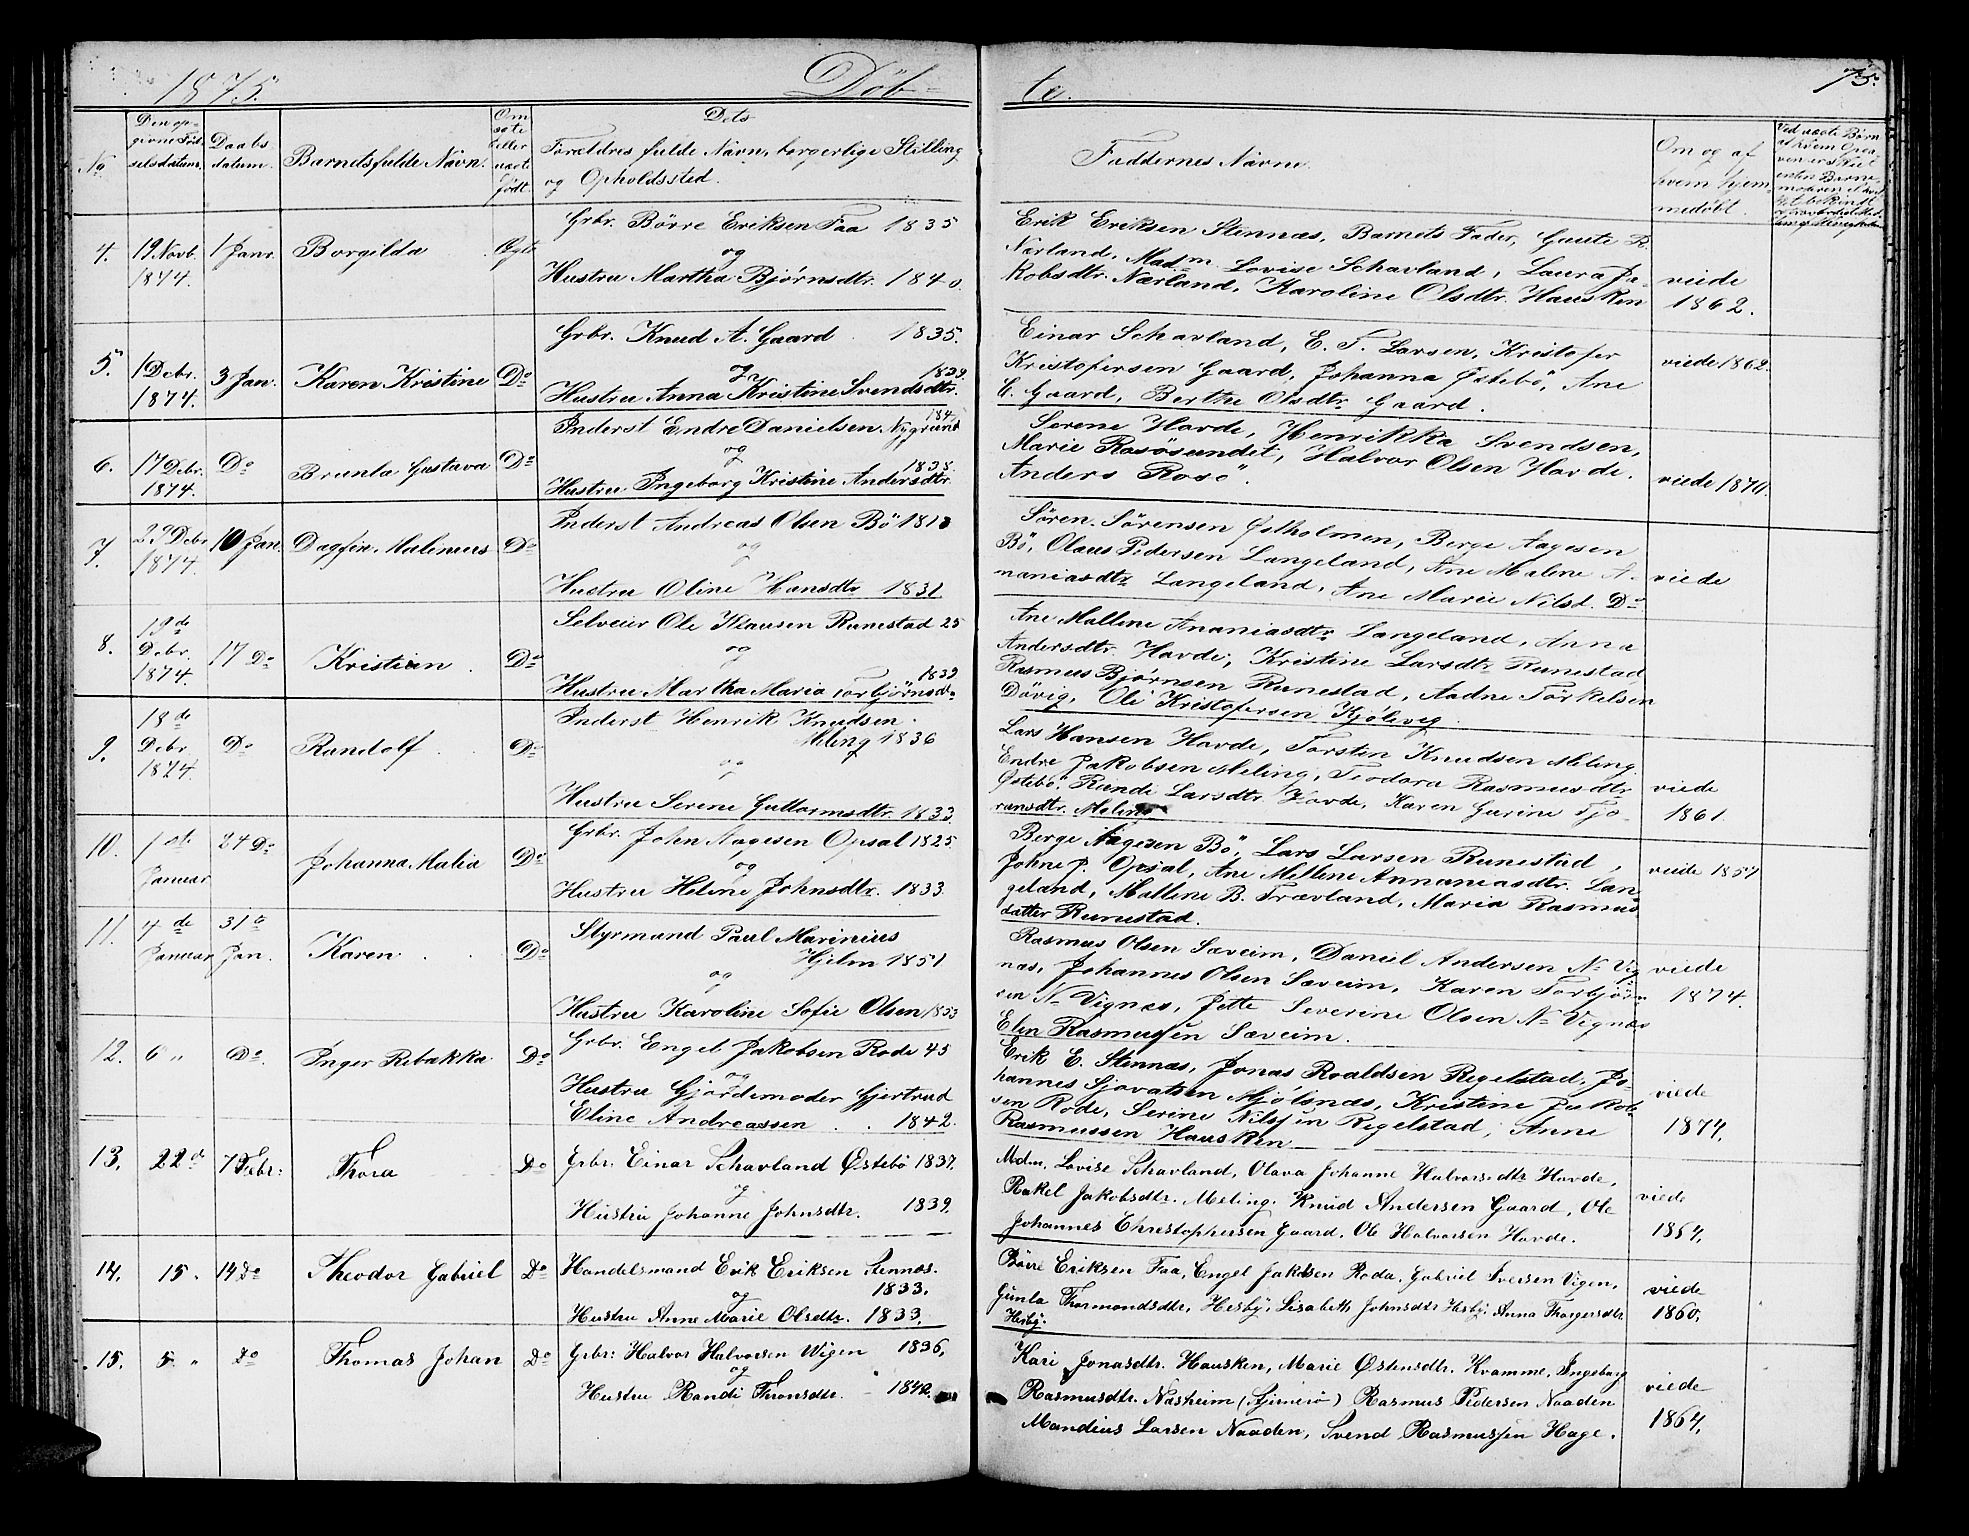 1875. Döb- te. 75.
No
Den op-
givne Föd-
selsdatum.
Daabs
datum.
Barnets fulde Navn.
Om
ægte
eller
uægte
født.
Dets
Forældres fulde Navn, borgerlige Stilling
og Opholdssted.
Faddernes Navne.
Om og af
hvem hjem-
medöbt.
4. 19 Novb. 1874. 1 Janr. Borgilda Ægte
Grbr. Börre Eriksen Faa 1835
og
Hustru Martha Bjørnsdtr. 1840.
Erik Eriksen Stennæs, Barnets Fader, Gaute R.
Nærland, Madm. Lovise Schavland, Laura Ja-
kobsdtr. Nærland, Karoline Olsdtr. Hausken
viede
1862.
5. 1 Debr. 1874. 3 Jan. Karen Kristine Do
Grbr. Knud A. Gaard 1835.
og 1839.
Hustru Anna Kristine Svendsdtr.
Einar Schavland, E. T. Larsen, Kristofer
Kristofersen Gaard, Johanna Østebö, Ane
E. Gaard, Berthe Olsdtr. Gaard.
viede 1862.
6. 17 Debr. 1874. Do Brunla Gustava Do
Inderst Endre Danielsen Nygrund 184
og 1835.
Hustru Ingeborg Kristine Andersdtr.
Serene Havde, Henrikka Svendsen,
Marie Rosösundet, Halvor Olsen Havde.
Anders Rosö.
viede 1870.
7. 29 Debr 1874. 10 Jan. Dagfin Malinius Do
Inderst Andreas Olsen Bö 1813
og
Hustru Oline Hansdtr 1831.
Sören Sörensen Østholmen, Berge Aagesen
Bö, Olaus Pedersen Langeland, Ane Malene A-
naniasdtr Langeland, Ane Marie Nilsd. Do
viede
8. 19de Debr. 1874. 17 Do Kristian Do
Selveier Ole Klausen Runestad 25
og 1832.
Hustru Martha Maria Torbjörnsd-
Ane Mallene Ananiasdtr Langeland, Anna
Andersdtr. Havde, Kristine Larsdtr Runestad
Rasmus Bjørnsen Runestad, Aadne Torkelsen
Dövig, Ole Kristofersen Kjölevig.
9. 18de Debr 1874. Do Randolf Do
Inderst Henrik Knudsen
Meling 1836
og
Hustru Serene Guttormsdtr. 1833.
Lars Hansen Havde, Torsten Knudsen Meling
Endre Jakobsen Meling, Teodora Rasmusdtr
Østebö, Rande Larsdtr. Hovde, Karen Gurine Tjo-
ransdtr. Meling
viede
1861.
10. 1ste Januar 24 Do Johanna Malia Do
Grbr. John Aagesen Opsal 1825
og
Hustru Helene Johnsdtr. 1833.
Berge Aagesen Bö, Lars Larsen Runestad,
Johne J. Opsal, Ane Mellene Annaniasdtr. Lan-
geland, Mallene B. Trævland, Maria Rasmus-
datter Runestad.
viede 1857
11. 4de Januar 31te Jan. Karen Do
Styrmand Paul Marinius
Hjelm 1851
og
Hustru Karoline Sofie Olsen 1853
Rasmus Olsen Sæveim, Daniel Andersen N. Vig-
næs, Johannes Olsen Sæveim, Karen Torbjörn-
sen N. Vignæs, Jette Severine Olsen N. Vignæs
Elen Rasmussen Sæveim.
viede
1874.
12. 6 " Do Inger Rebakka Do
Grbr. Engel Jakobsen Rode 45
og
Hustru Gjördemoder Gjertrud
Eline Andreassen 1842.
Erik E. Stennæs, Jonas Roaldsen Regelstad, Jo-
hannes Sjovatsen Mjölsnæs, Kristine Jakob-
sen Rode, Serine Nilssen Regelstad, Anne
Rasmussen Hausken
viede
1874.
13. 22de 7 Febr: Thora Do
Grbr: Einar Schavland Østebö 1837.
og
Hustru Johanne Johnsdtr. 1839.
Mdm. Lovise Schavland, Olava Johanne Halvorsdtr Hovde,
Rakel Jakobsdtr. Meling. Knud Andersen Gaard, Ole
Johannes Christophersen Gaard. Ole Halvorsen Hovde.
viede
1864.
14. 15. 14 Do Theodor Gabriel Do
Handelsmand Erik Eriksen Stennæs.
og 1833.
Hustru Anne Marie Olsdtr. 1833.
Börre Eriksen Faa, Engel Jakobsen Roda, Gabriel Iversen Vigen,
Gunla Thormondsdtr, Hesby, Lisabeth Johnsdtr Hesby. Anna Thorgersdtr
Hesby.
viede
1860.
15. 5. " Do Thomas Johan Do
Grbr: Halvor Halvorsen Wigen 1836,
og
Hustru Randi Thonsdtr. 1842.
Kari Jonasdtr. Hausken, Marie Østensdtr. Kvamme, Ingeborg
Rasmusdtr. Næsheim (Sjernerö) Rasmus Pedersen Naaden
Mandius Larsen Naaden, Svend Rasmussen Hage.
viede
1864,